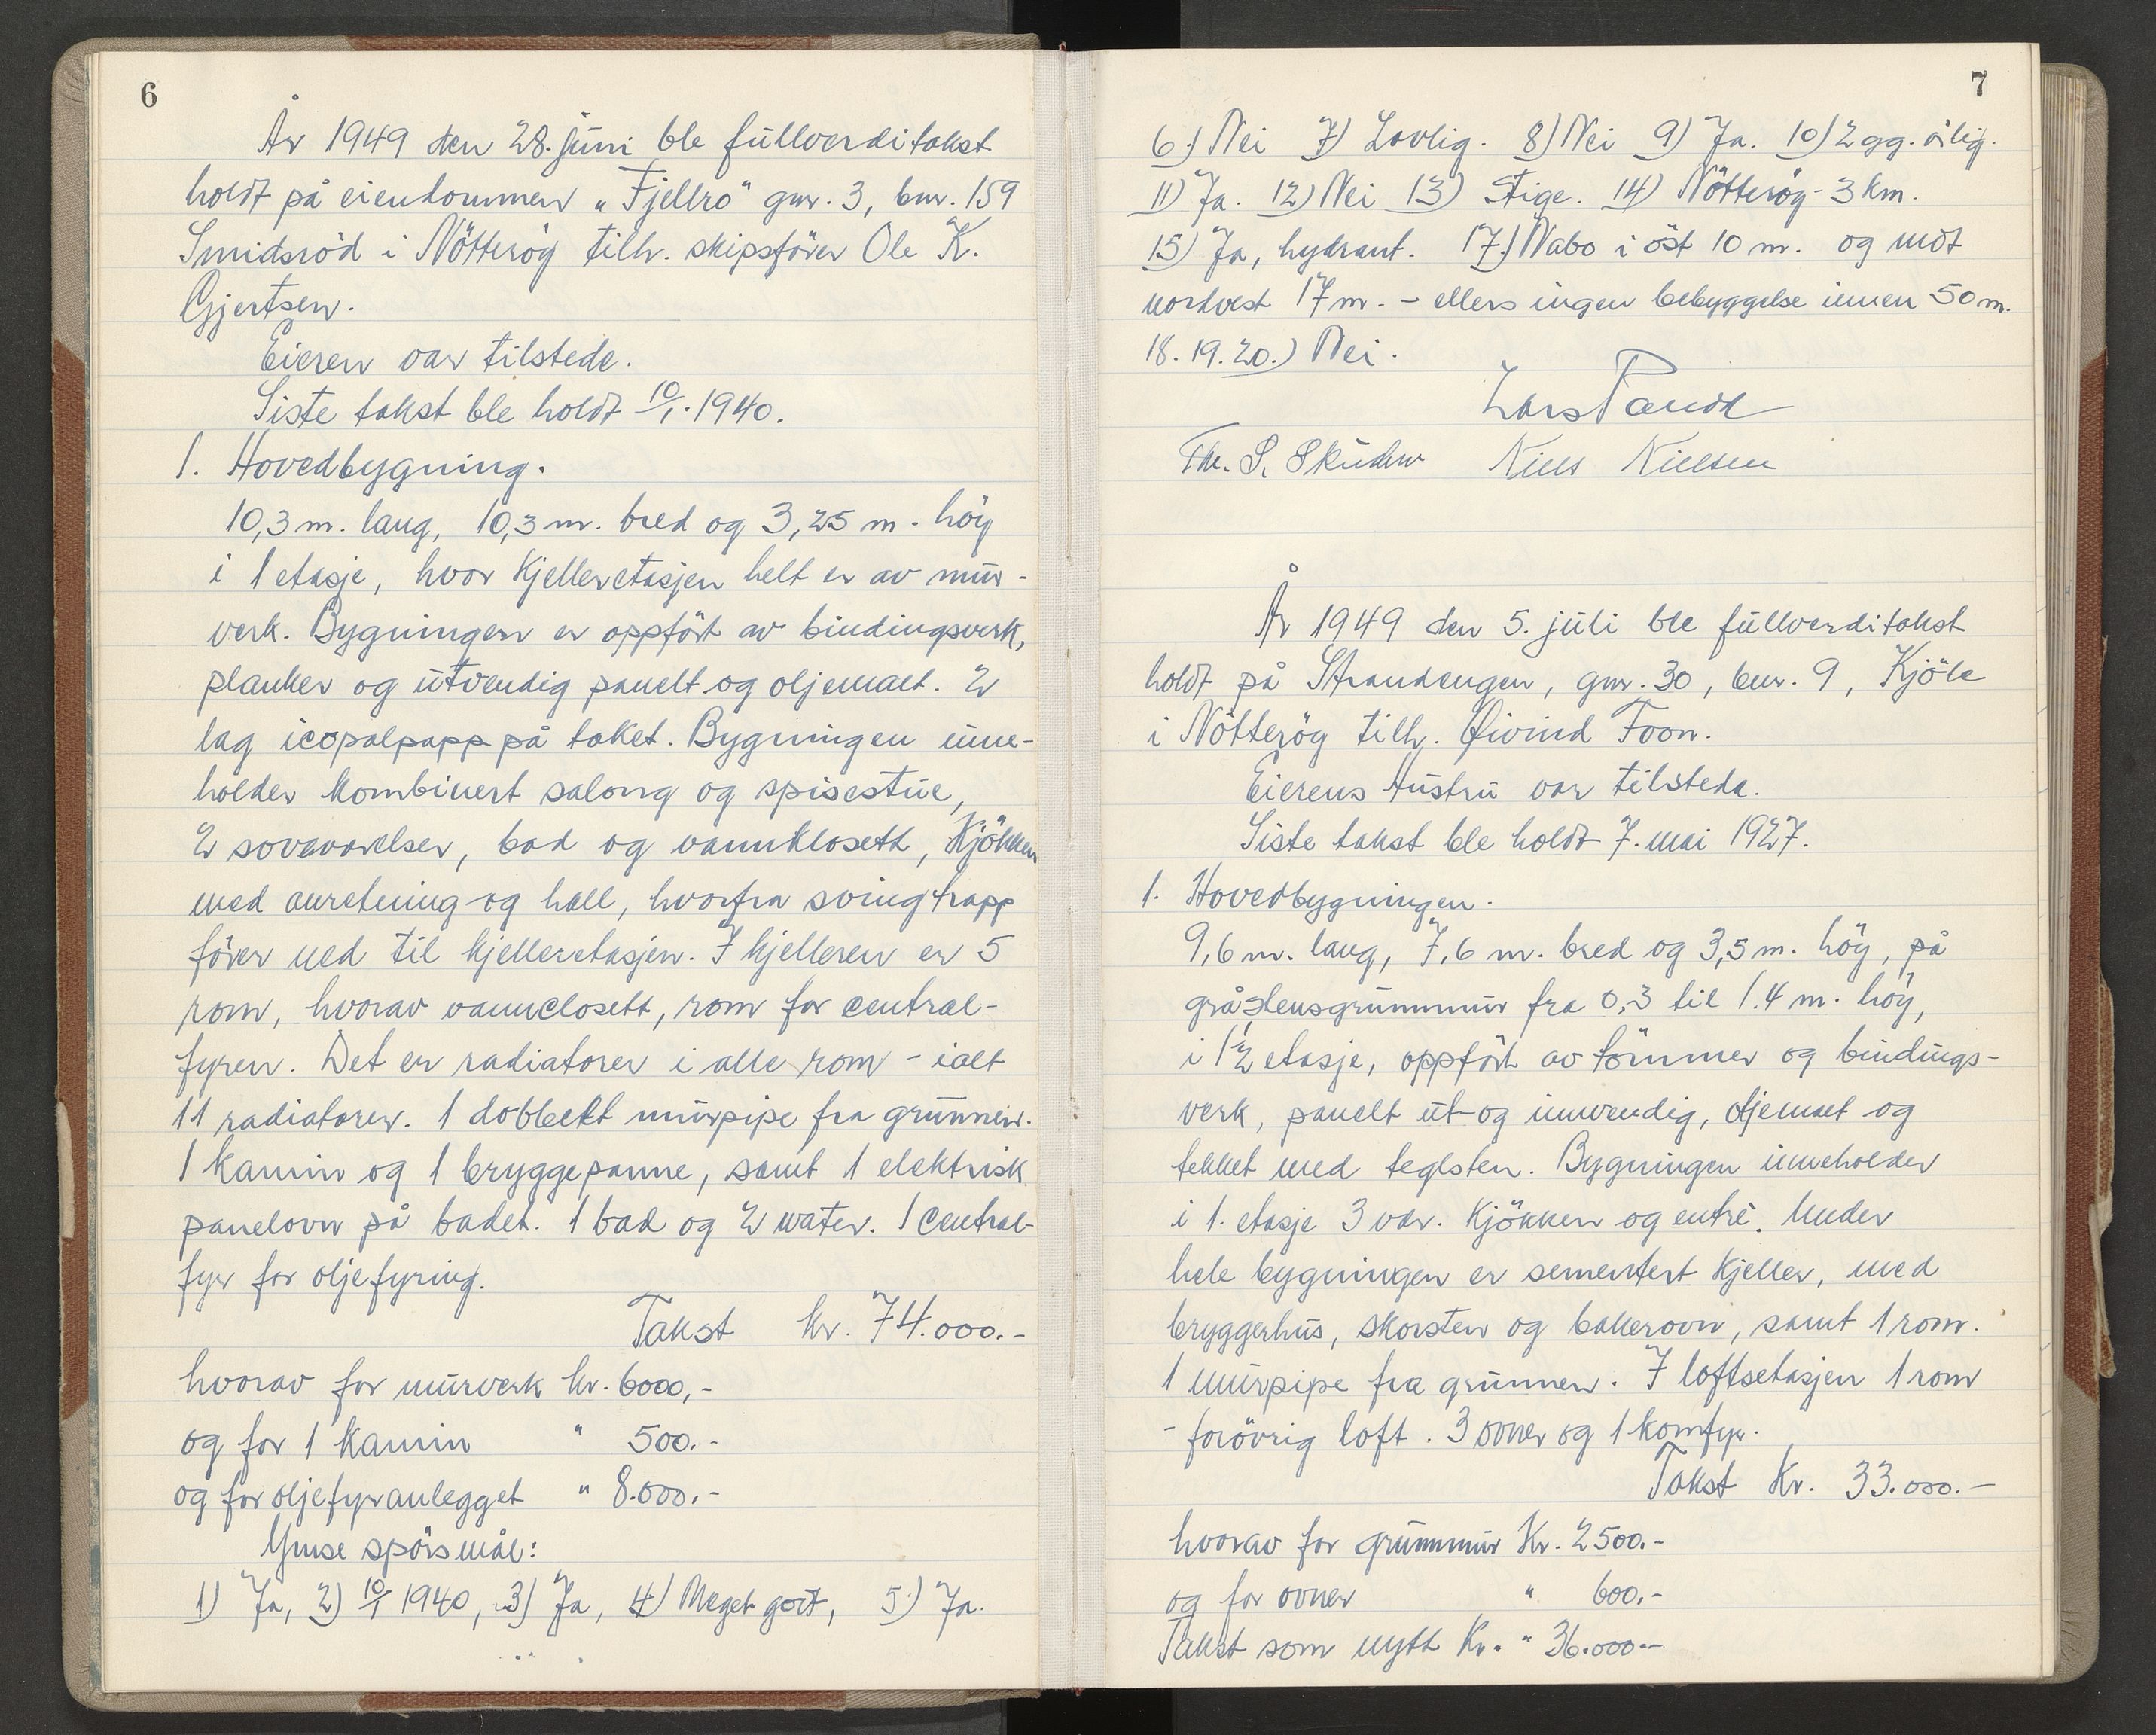 6
År 1949 den 28. juni ble fullverditakst
holdt på eiendommen „Fjellro" gnr. 3, bnr. 159
Smidsröd i Nötteröy tilh. skipsförer Ole K.
Gjertsen.
Eieren var tilstede.
Siste takst ble holdt 10/1. 1940.
1. Hovedbygning.
10,3 m. lang, 10,3 m. bred og 3,25 m. höy
i 1 etasje, hvor kjelleretasjen helt er av mur-
verk. Bygningen er oppfört av bindingsverk,
planker og utvendig panelt og oljemalt. 2
lag icopalpapp på taket. Bygningen inne-
holder kombinert salong og spisestue,
2 soveværelser, bad og vannklosett, kjökken
med anretning og hall, hvorfra svingtrapp
förer ned til kjelleretasjen. I kjelleren er 5
rom, hvorav vannclosett, rom for central-
fyren. Det er radiatorer i alle rom - ialt
11 radiatorer. 1 dobbelt murpipe fra grunnen.
1 kamin og 1 bryggepanne, samt 1 elektrisk
panelovn på badet. 1 bad og 2 water. 1 central-
fyr for oljefyring.
Takst kr. 74.000.-
hvorav for murverk kr. 6000,-
og for 1 kamin " 500.-
og for oljefyranlegget " 8.000.-
Ymse spörsmål:
1) Ja, 2) 10/1 1940, 3) Ja, 4) Meget godt, 5) Ja.
7
6.) Nei 7) Lovlig. 8) Nei 9) Ja. 10) 2 gg. årlig.
11) Ja. 12) Nei 13) Stige. 14) Nötteröy - 3 km.
15) Ja, hydrant. 17.) Nabo i öst 10 m. og mot
nordvest 17 m. - ellers ingen bebyggelse innen 50 m.
18. 19. 20.) Nei.
Lars
Th. S. Niels Nielsen
År 1949 den 5. juli ble fullverditakst
holdt på Strandengen, gnr. 30, bnr. 9, Kjöle
i Nötteröy tilh. Øivind Foon.
Eierens hustru var tilstede.
Siste takst ble holdt 7. mai 1927.
1. Hovedbygningen.
9,6 m. lang, 7,6 m. bred og 3,5 m. höy, på
gråstensgrunnmur fra 0,3 til 1.4 m. höy,
i 1 1/2 etasje, oppfört av tömmer og bindings-
verk, panelt ut- og innvendig, oljemalt og
tekket med teglsten. Bygningen inneholder
i 1. etasje 3 vær. kjökken og entré. Under
hele bygningen er sementert kjeller, med
bryggerhus, skorsten og bakerovn, samt 1 rom.
1 murpipe fra grunnen. I loftsetasjen 1 rom
- forövrig loft. 3 ovner og 1 komfyr.
Takst Kr. 33.000.-
hvorav for grunnmur Kr. 2500.-
og for ovner " 600.-
Takst som nytt Kr. " 36.000.-